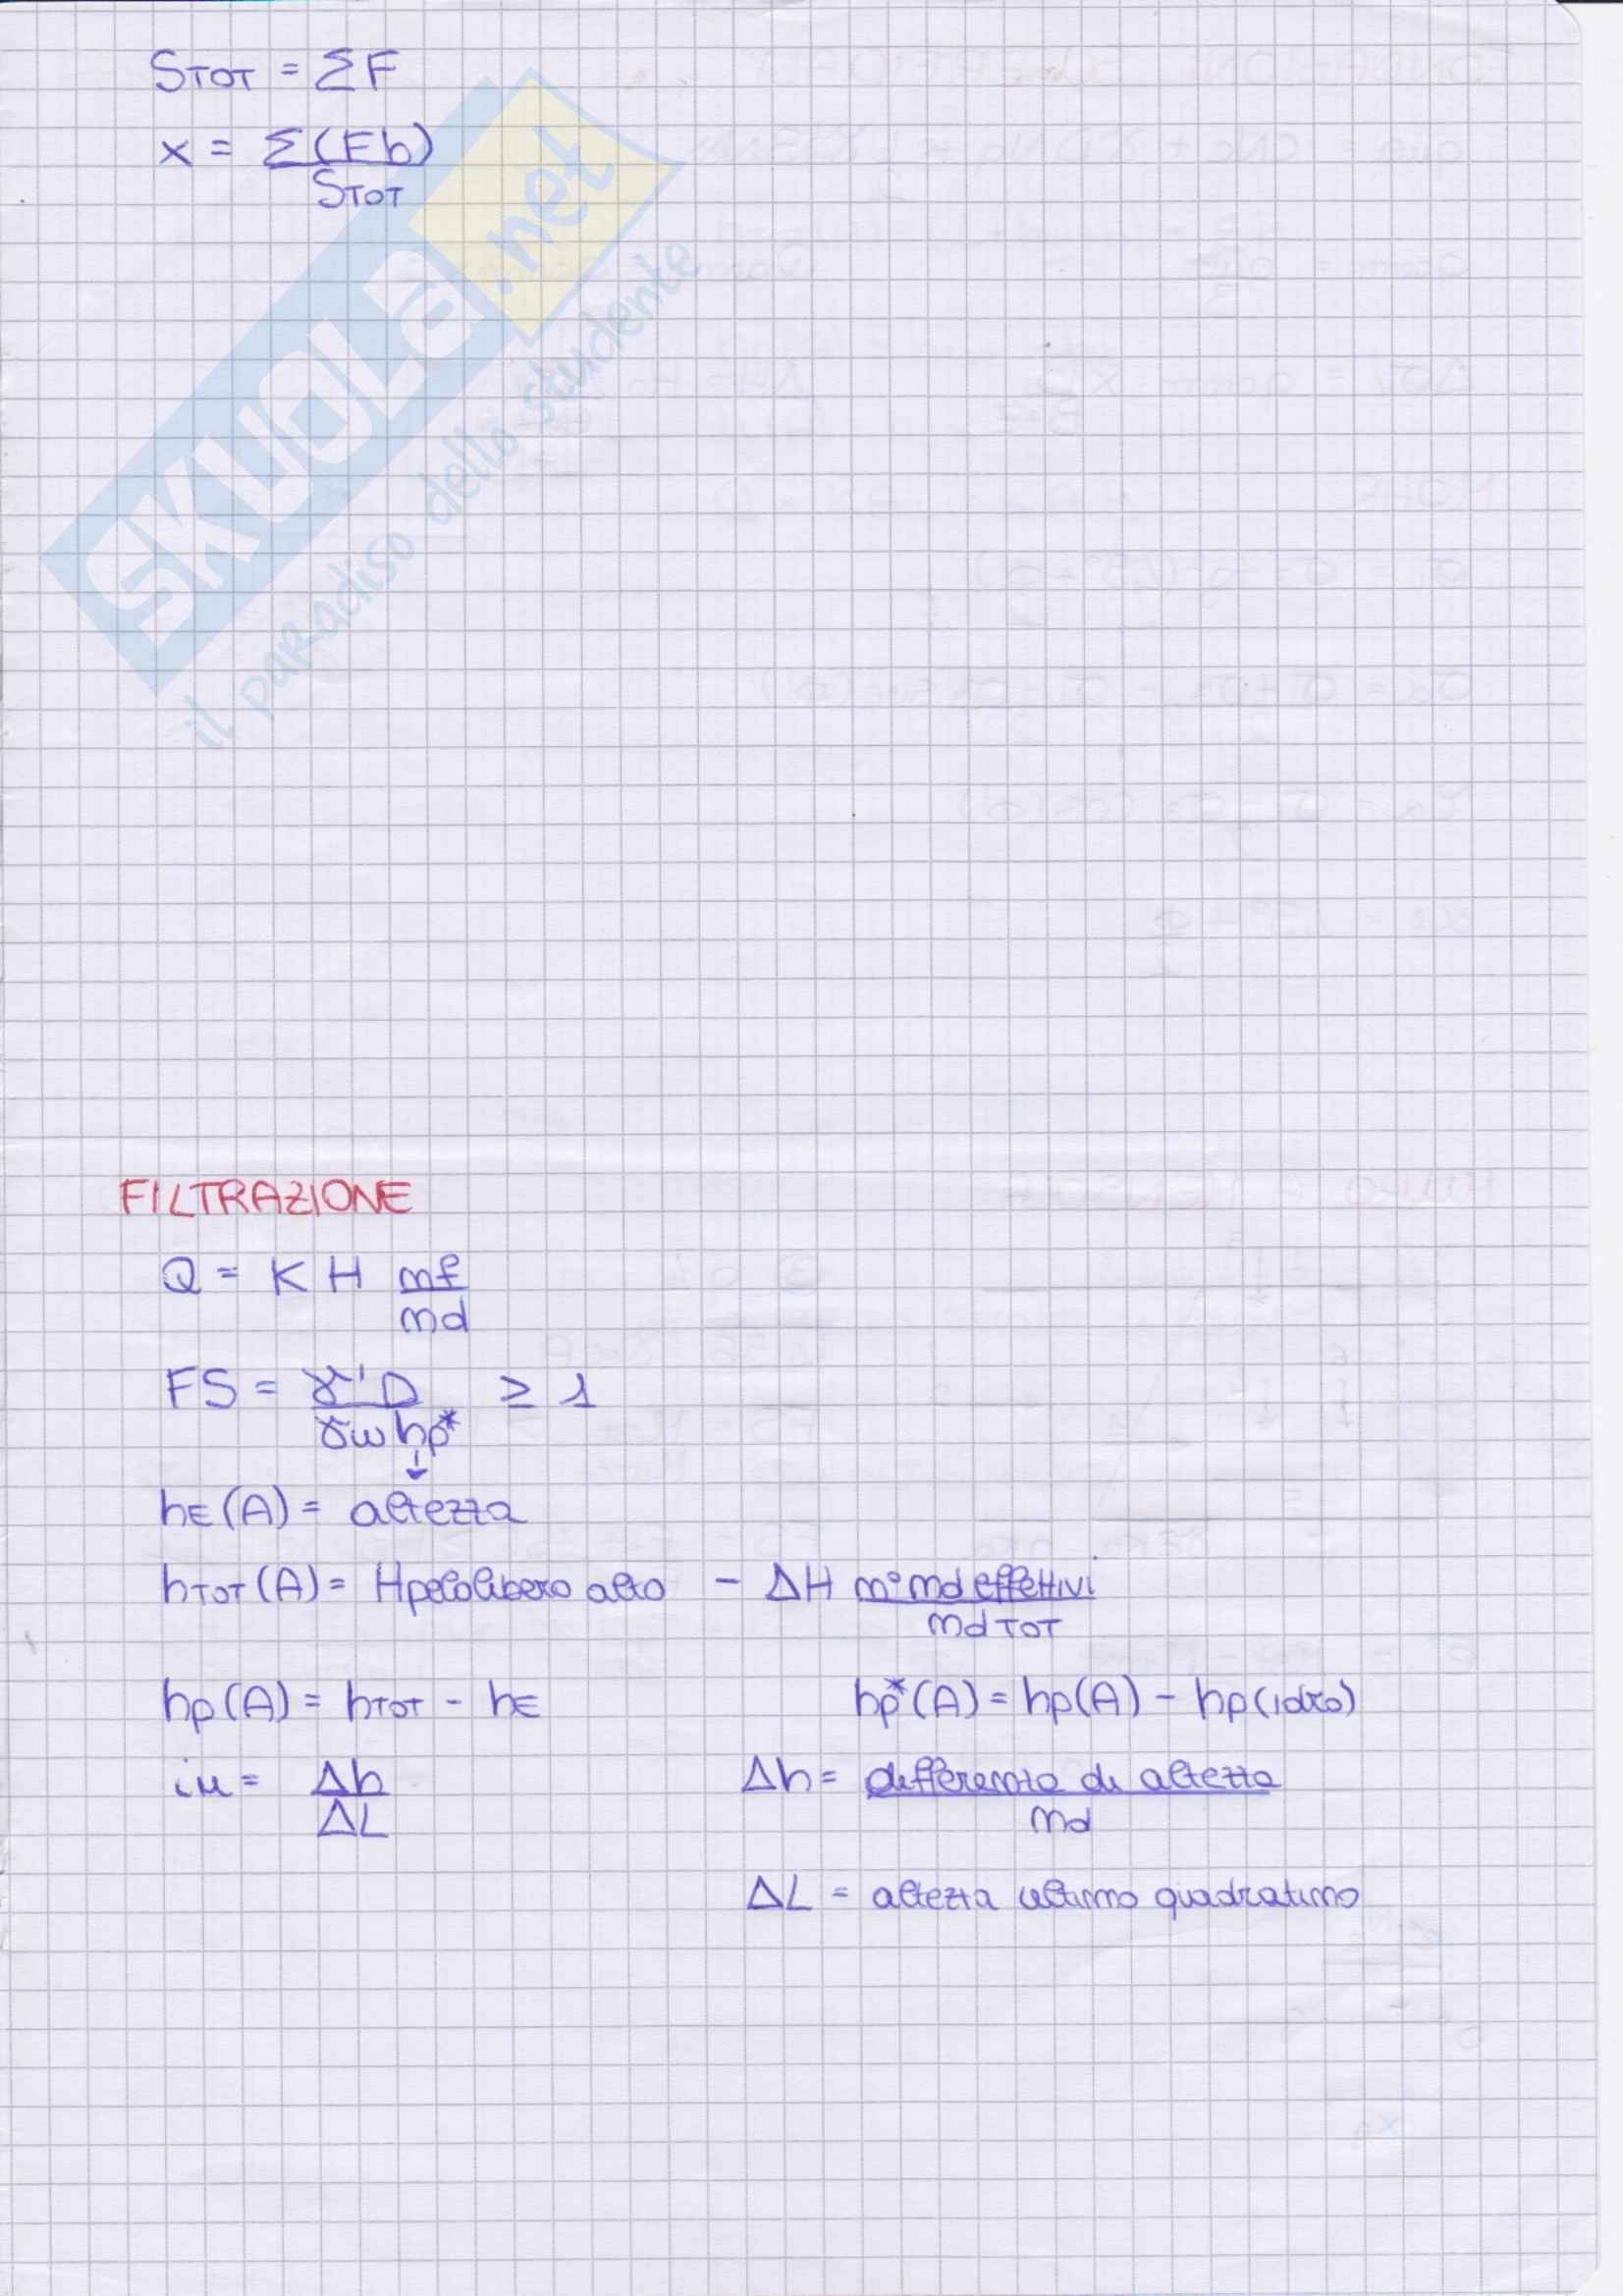 STOT = ΣF
x = Σ(Fb)
STOT
SKUOLA.net
il paradiso dello studente
FILTRAZIONE
Q = K H mf
md
FS = γ'D ≥ 1
γw hp*
↓
hE(A) = altezza
hTOT(A) = Hpelolibero alto - ΔH n° md effettivi
md TOT
hp(A) = hTOT - hE hp*(A) = hp(A) - hp(idro)
iu = Δh Δh = differenza di altezza
ΔL md
ΔL = altezza ultimo quadratino